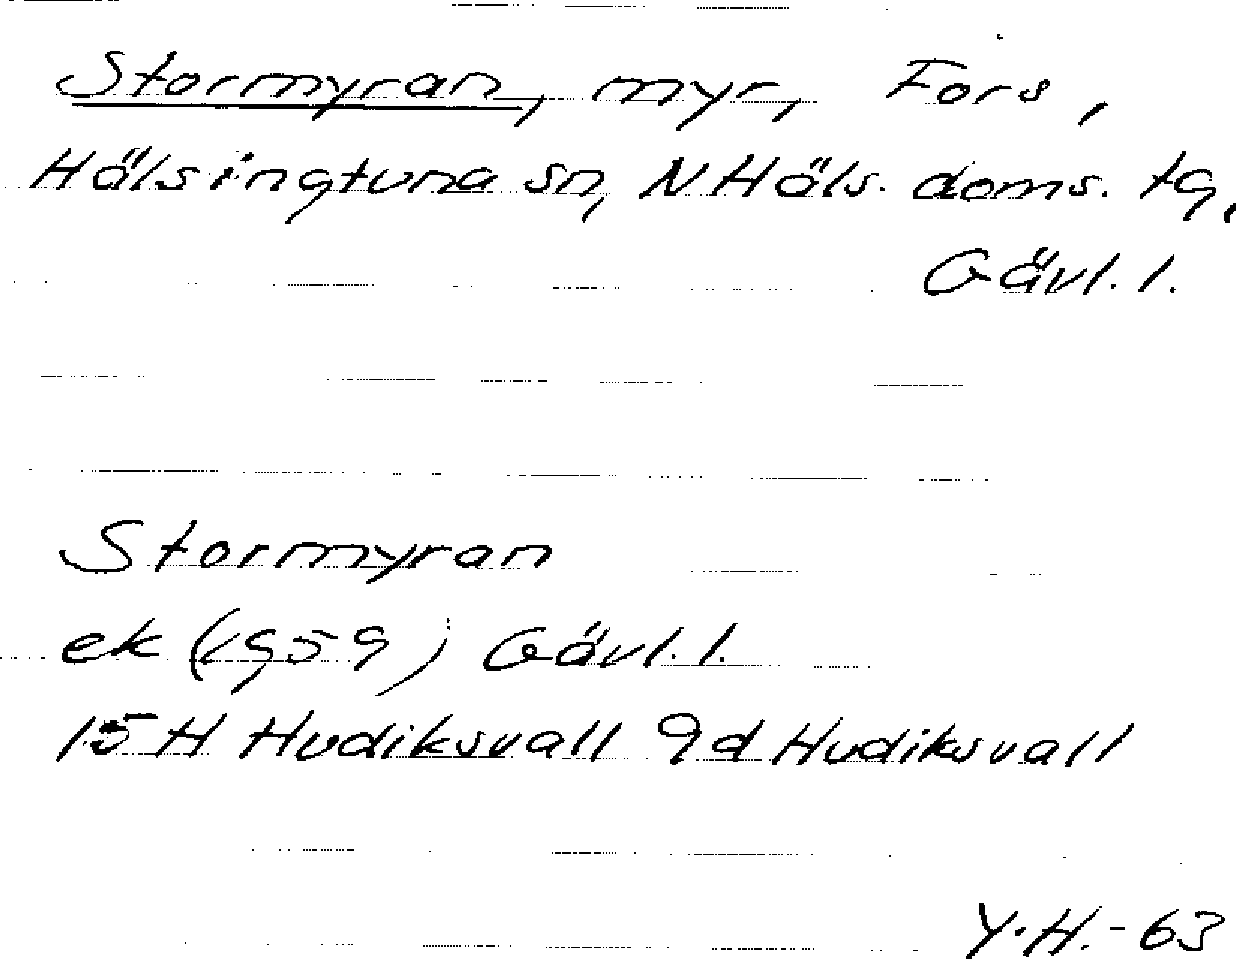 Stormyran, myr, Fors,
Hälsingtuna sn, N Häls. doms. tg,
Gävl. l.
Stormyran
ek (1959) Gävl. l.
15 H Hudiksvall 9d Hudiksvall
Y.H.-63